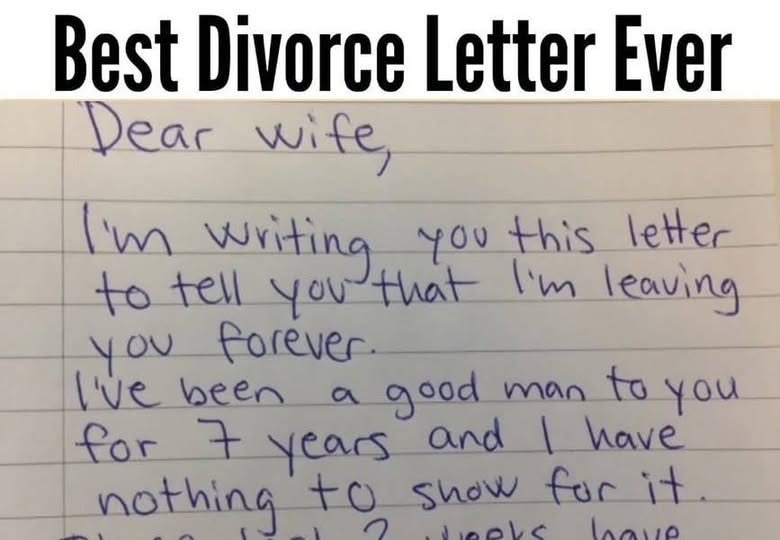 Best Divorce Letter Ever
Dear wife,
I'm writing you this letter
to tell you that I'm leaving
you forever.
I've been a good man to you
for 7 years and I have
nothing to show for it.
2 weeks have